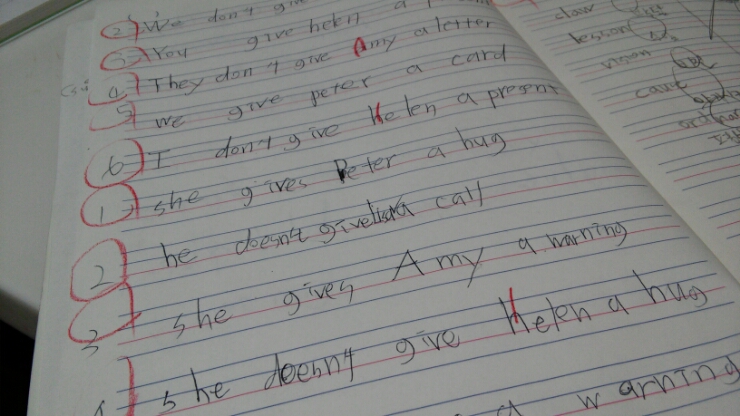 2) We don't give
3) You give helen a
4) They don't give Amy a letter
5 we give peter a card
6) I don't give Helen a present
1) she gives Peter a hug
2 he doesn't give a call
3 she gives Amy a warning
she doesn't give Helen a hug
a warning
claw
lesson
vision
cause